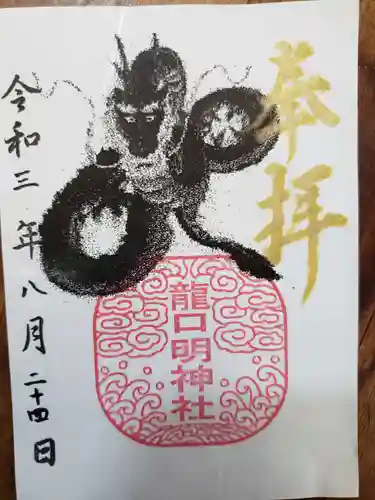 奉拝
龍口明神社
令和三年八月二十四日